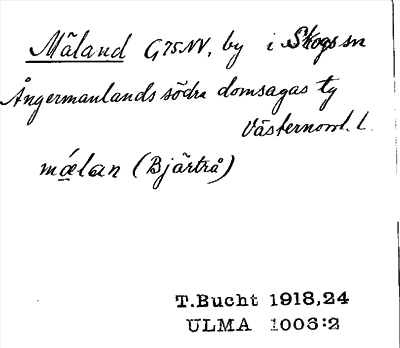 Mäland G75NV, by i Skogs sn
Ångermanlands södra domsagas tg
Västernorrl. l.
mǽlan (Bjärtrå)
T.Bucht 1918,24
ULMA 1003:2